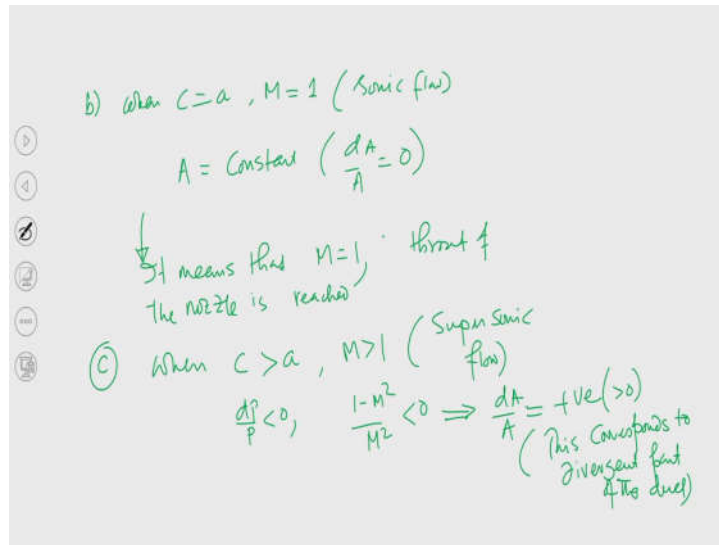 b) when C = a , M = 1 ( Sonic flow)
A = Constant ( dA/A = 0 )
It means that M = 1, throat of
the nozzle is reached
(C) when C > a , M > 1 ( Super sonic
flow)
dP/P < 0, (1-M²)/M² < 0 ⇒ dA/A = +ve (>0)
( This Corresponds to
divergent part
of the duct)